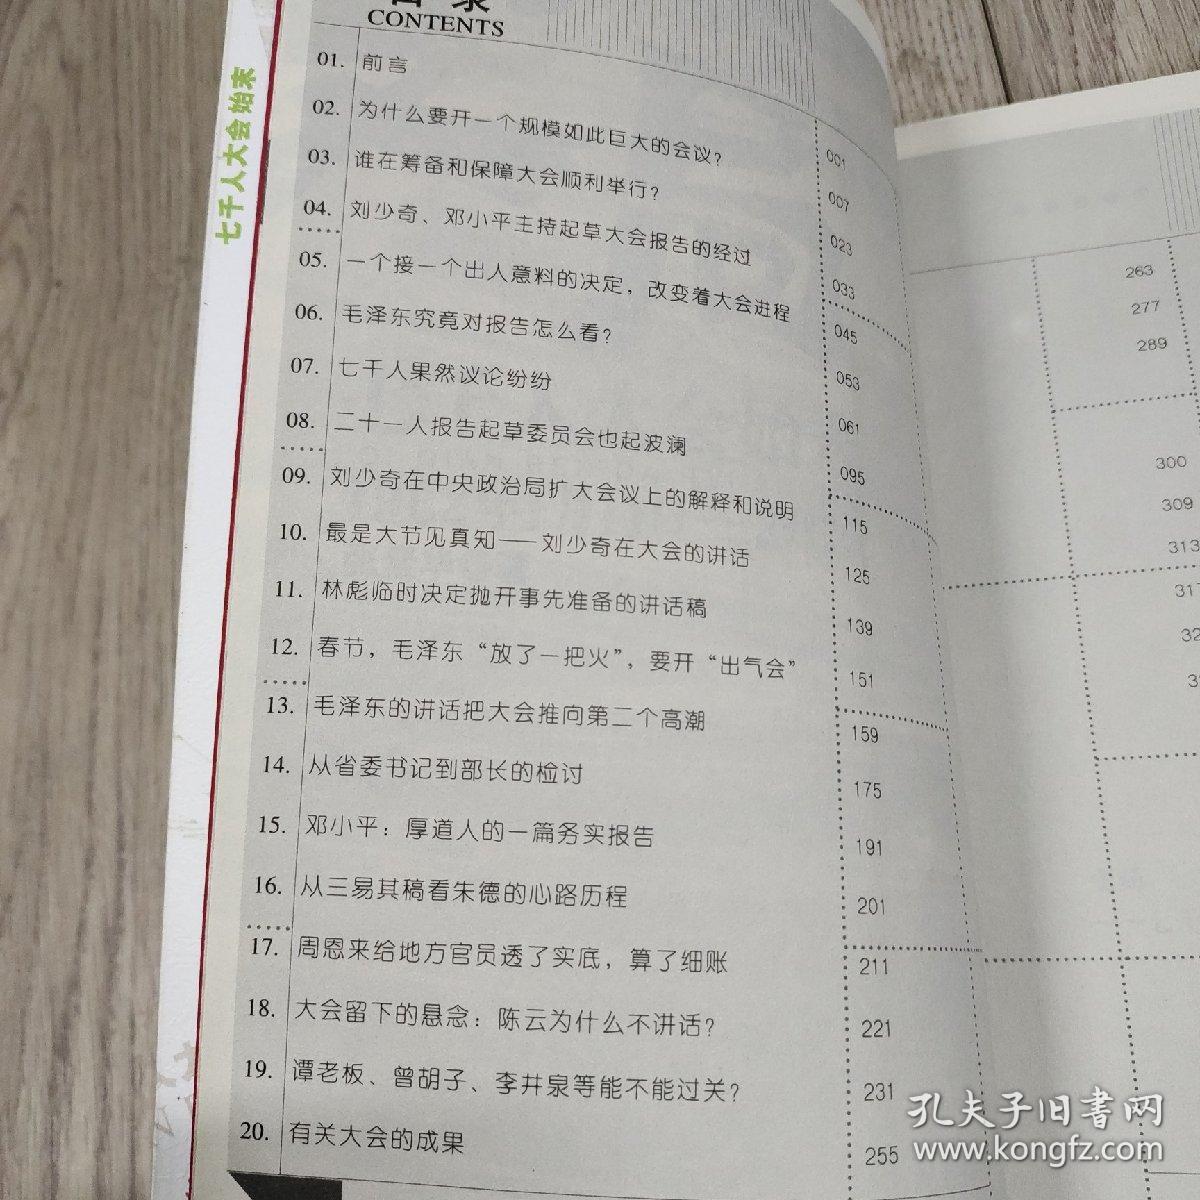 目录
CONTENTS
七千人大会始末
01. 前言 001
02. 为什么要开一个规模如此巨大的会议？ 007
03. 谁在筹备和保障大会顺利举行？ 023
04. 刘少奇、邓小平主持起草大会报告的经过 033
05. 一个接一个出人意料的决定，改变着大会进程 045
06. 毛泽东究竟对报告怎么看？ 053
07. 七千人果然议论纷纷 061
08. 二十一人报告起草委员会也起波澜 095
09. 刘少奇在中央政治局扩大会议上的解释和说明 115
10. 最是大节见真知——刘少奇在大会的讲话 125
11. 林彪临时决定抛开事先准备的讲话稿 139
12. 春节，毛泽东“放了一把火”，要开“出气会” 151
13. 毛泽东的讲话把大会推向第二个高潮 159
14. 从省委书记到部长的检讨 175
15. 邓小平：厚道人的一篇务实报告 191
16. 从三易其稿看朱德的心路历程 201
17. 周恩来给地方官员透了实底，算了细账 211
18. 大会留下的悬念：陈云为什么不讲话？ 221
19. 谭老板、曾胡子、李井泉等能不能过关？ 231
20. 有关大会的成果 255
263
277
289
300
309
313
孔夫子旧书网
www.kongfz.com